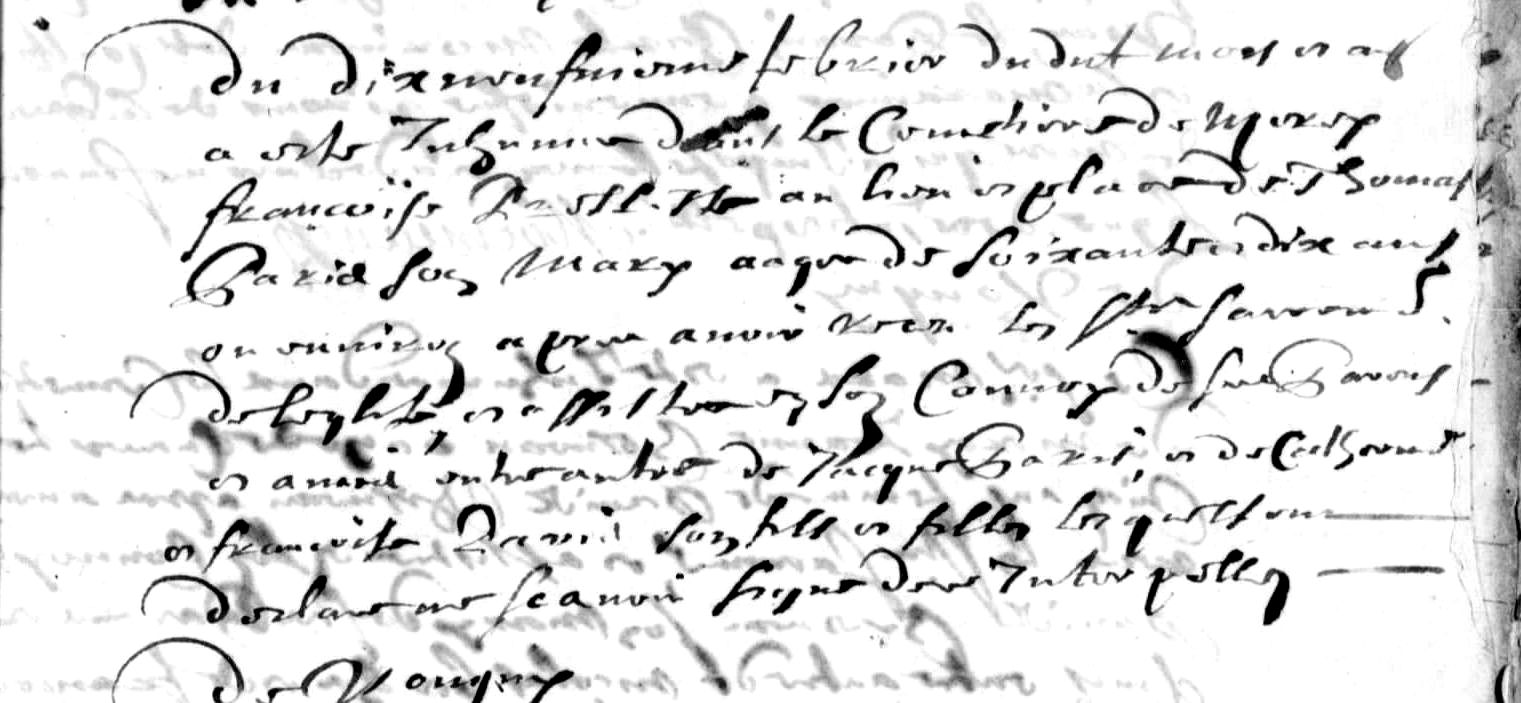 Du dix neufuieme febvrier dudit mois et an
a este Inhumee dans le Cemetiere de Morex
francoise au lieu et place de Thomas
Paris son Mary aagee de soixante et dix ans
ou environ apres avoir receu les Sts sacremens
de leglise, et assistee en son Convoy de ses Parens
et amis entre autre de Jacque Paris, et de Catherine
et francoise Paris son fils et filles lesquels ont
declare ne scavoir signe de ce Interpelles
De Vougny